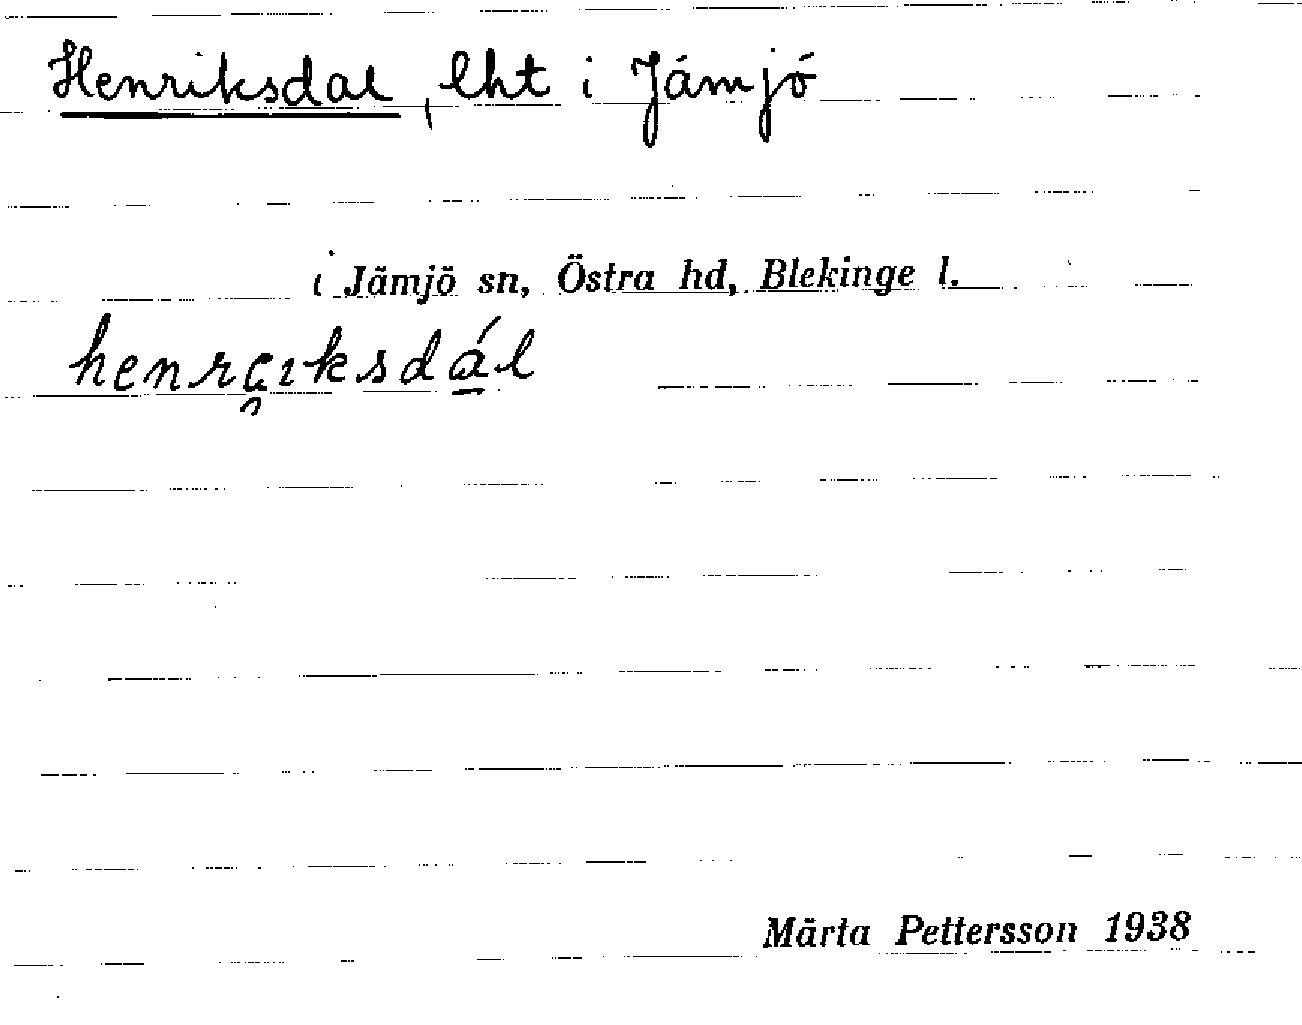 Henriksdal, lht i Jämjö
i Jämjö sn, Östra hd, Blekinge l.
Märta Pettersson 1938